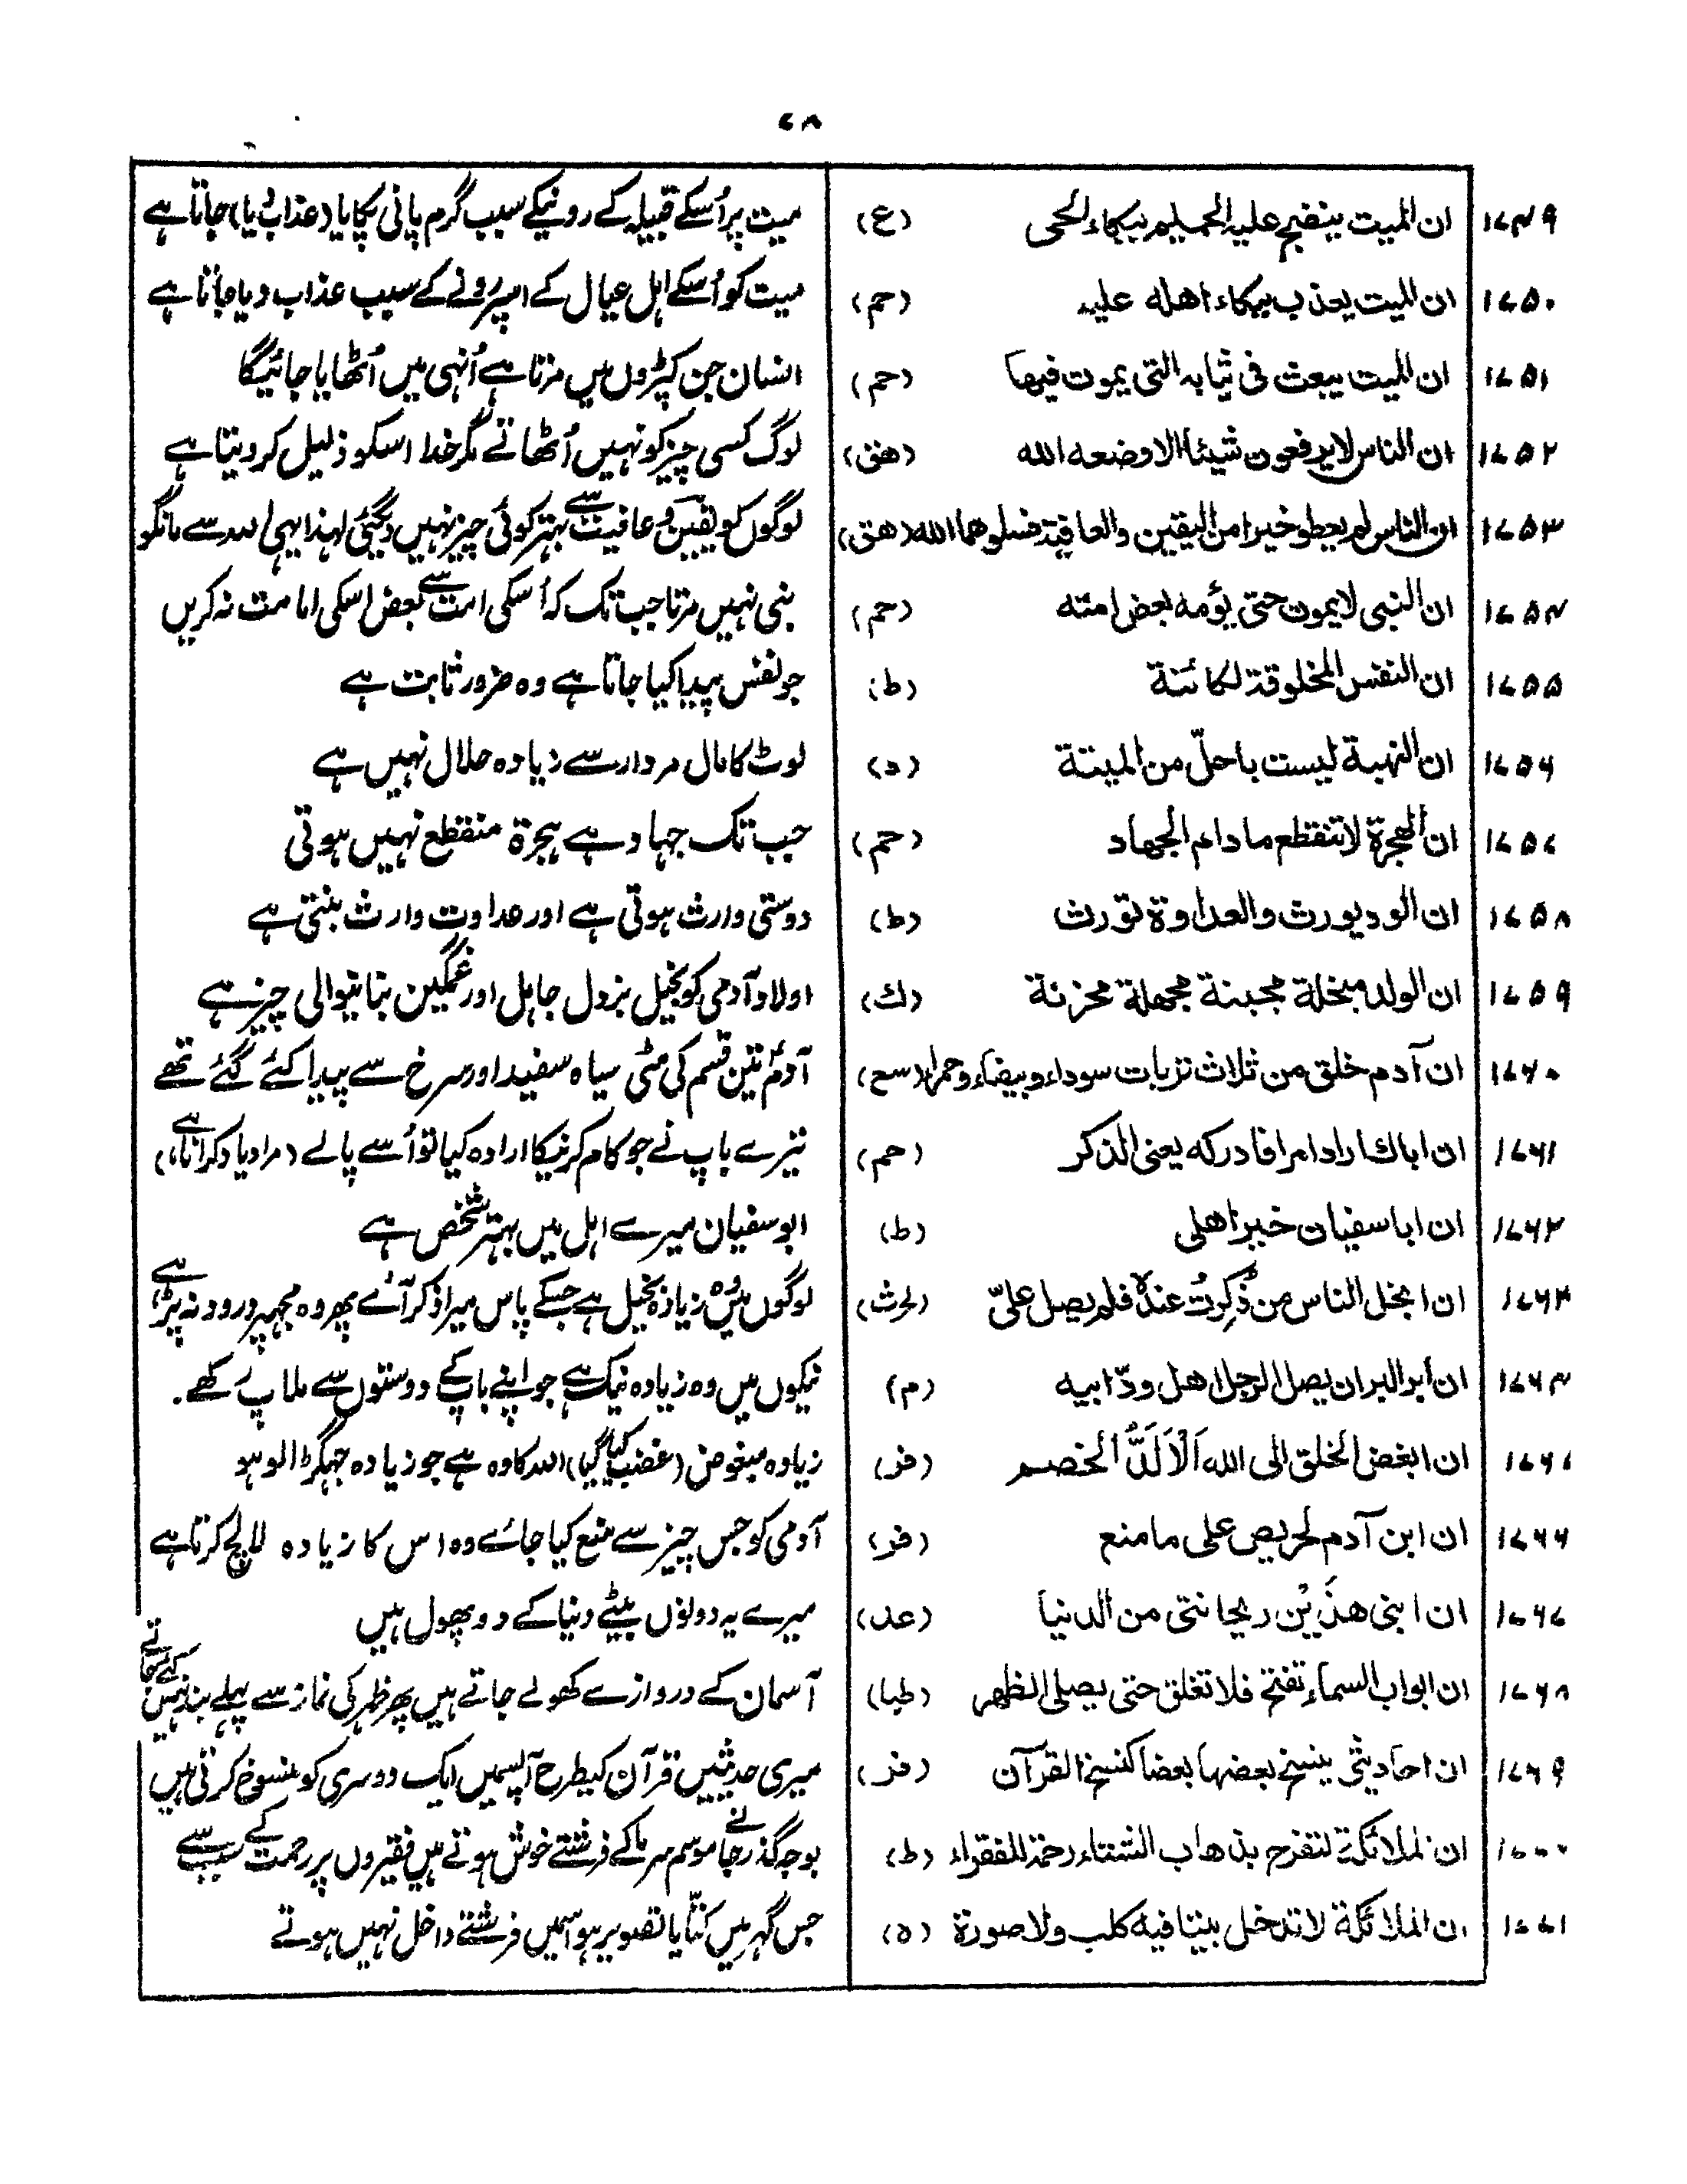 ۷۸
۱۷۴۹ ان المیت ینضح علیه الحمیم ببکاء الحی (ع) میت پر اُسکے قبیلہ کے رونیکے سبب گرم پانی پکایا (عذاب دیا) جاتا ہے
۱۷۵۰ ان المیت یعذب ببکاء اهله علیه (حم) میت کو اُسکے اہل عیال کے اسپر رونے کے سبب عذاب دیا جاتا ہے
۱۷۵۱ ان المیت یبعث فی ثیابه التی یموت فیها (حم) انسان جن کپڑوں میں مرتا ہے اُنہی میں اُٹھایا جائیگا
۱۷۵۲ ان الناس لا یرفعون شیئا الا وضعه الله (هق) لوگ کسی چیز کو نہیں اُٹھاتے مگر خدا اسکو ذلیل کر دیتا ہے
۱۷۵۳ ان الناس لم یعطو خیرا من الیقین والعافیة فسلوهما الله (هق) لوگوں کو یقین و عافیت سے بہتر کوئی چیز نہیں دیگئی لہذا یہی اللہ سے مانگو
۱۷۵۴ ان النبی لا یموت حتی یؤمه بعض امته (حم) نبی نہیں مرتا جب تک کہ اُسکی امت سے بعض اسکی امامت نہ کریں
۱۷۵۵ ان النفس المخلوقة لکائنة (ط) جو نفس پیدا کیا جاتا ہے وہ ضرور ثابت ہے
۱۷۵۶ ان النهبة لیست باحلّ من المیتة (د) لوٹ کا مال مردار سے زیادہ حلال نہیں ہے
۱۷۵۷ ان الهجرة لا تنقطع ما دام الجهاد (حم) جب تک جہاد ہے ہجرۃ منقطع نہیں ہوتی
۱۷۵۸ ان الود یورث والعداوة تورث (ط) دوستی وارث ہوتی ہے اور عداوت وارث بنتی ہے
۱۷۵۹ ان الولد مبخلة مجبنة مجهلة محزنة (ك) اولاد آدمی کو بخیل بزدل جاہل اور غمگین بنانیوالی چیز ہے
۱۷۶۰ ان آدم خلق من ثلاث تربات سوداء وبیضاء وحمرا (سع) آدمؑ تین قسم کی مٹی سیاہ سفید اور سرخ سے پیدا کئے گئے تھے
۱۷۶۱ ان اباك اراد امرا فادرکه یعنی الذکر (حم) تیرے باپ نے جو کام کرنیکا ارادہ کیا تو اُسے پالے (مراد یاد کرانا ہے)
۱۷۶۲ ان ابا سفیان خیر اهلی (ط) ابو سفیان میرے اہل میں بہتر شخص ہے
۱۷۶۳ ان ابخل الناس من ذُکِرتُ عندہ فلم یصل علیّ (لحرث) لوگوں میں وہ زیادہ بخیل ہے جسکے پاس میرا ذکر آئے پھر وہ مجہپر درود نہ پڑہے
۱۷۶۴ ان أبر البر ان یصل الرجل اهل ودّ ابیه (م) نیکوں میں وہ زیادہ نیک ہے جو اپنے باپ کے دوستوں سے ملاپ رکھے.
۱۷۶۵ ان ابغض الخلق الی الله اَلْاَلَدُّ الخصم (فر) زیادہ مبغوض (غضب کیا گیا) اللہ کا وہ ہے جو زیادہ جہگڑالو ہو
۱۷۶۶ ان ابن آدم لحریص علی ما منع (فر) آدمی کو جس چیز سے منع کیا جائے وہ اس کا زیادہ لالچ کرتا ہے
۱۷۶۷ ان ابنی هذَین ریحانتی من الدنیا (عد) میرے یہ دونوں بیٹے دنیا کے دو پھول ہیں
۱۷۶۸ ان ابواب السماء تفتح فلا تغلق حتی یصلی الظهر (طیا) آسمان کے دروازے کھولے جاتے ہیں پھر ظہر کی نماز سے پہلے بند نہیں کئے جاتے
۱۷۶۹ ان احادیثی ینسخ بعضها بعضا کنسخ القرآن (فر) میری حدیثیں قرآن کیطرح آپسمیں ایک دوسری کو منسوخ کرتی ہیں
۱۷۷۰ ان الملائکة لتفرح بذهاب الشتاء رحمة للفقراء (ط) بوجہ گذر جانے موسم سرما کے فرشتے خوش ہوتے ہیں فقیروں پر رحمت کے سبب سے
۱۷۷۱ ان الملائکة لا تدخل بیتا فیه کلب ولا صورة (ه) جس گہر میں کتّا یا تصویر ہو اسمیں فرشتے داخل نہیں ہوتے